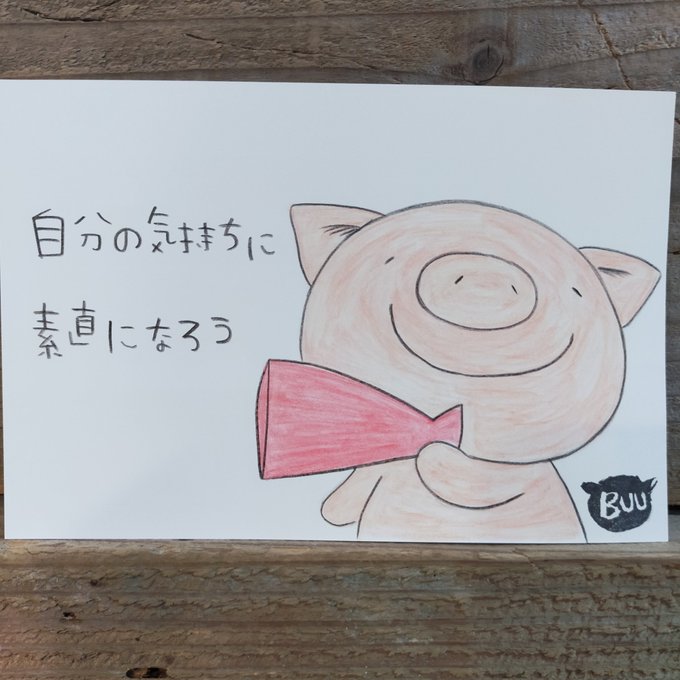 自分の気持ちに
素直になろう
BUU